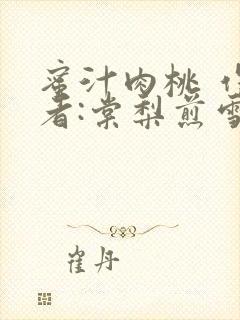 蜜汁肉桃 作
者:棠梨煎雪
崔丹